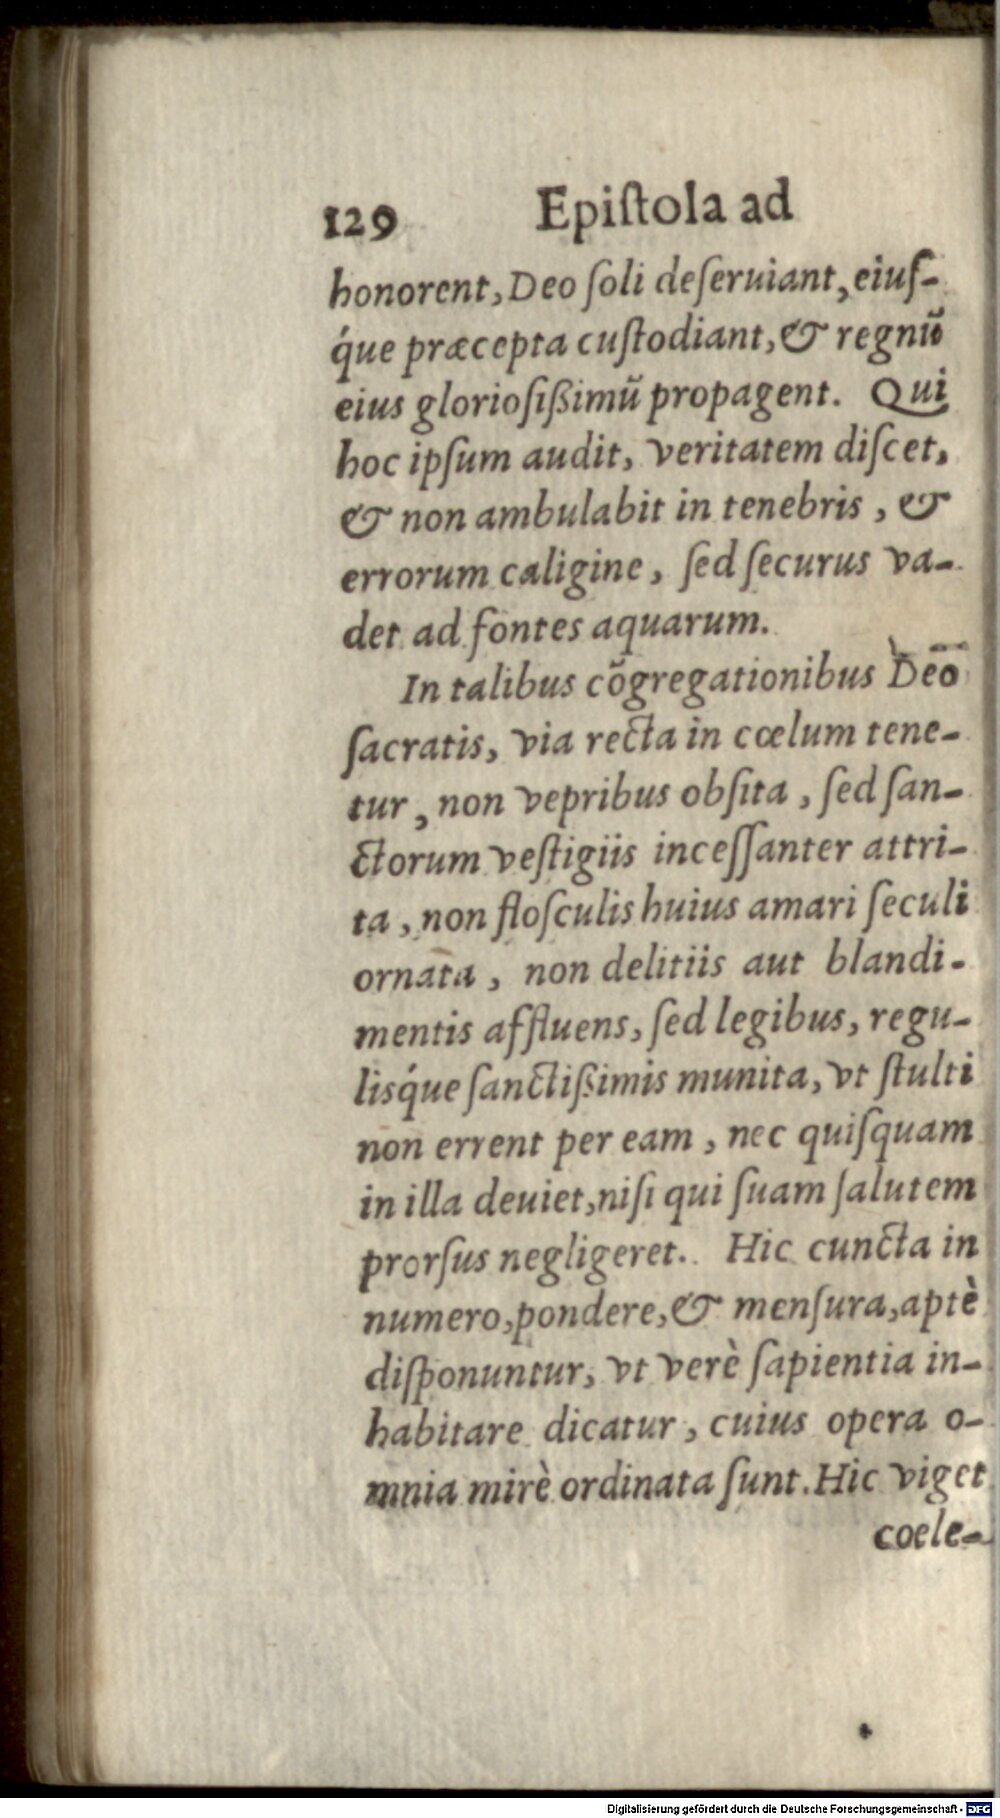 129 Epiſtola ad
honorent, Deo ſoli deſeruiant, eiuſ-
q́ue præcepta cuſtodiant, & regnũ
eius glorioſißimũ propagent. Qui
hoc ipſum audit, veritatem diſcet,
& non ambulabit in tenebris, &
errorum caligine, ſed ſecurus va-
det ad fontes aquarum.
In talibus cõgregationibus Deo
ſacratis, via recta in cœlum tene-
tur, non vepribus obſita, ſed ſan-
ctorum veſtigiis inceſſanter attri-
ta, non floſculis huius amari ſeculi
ornata, non delitiis aut blandi-
mentis affluens, ſed legibus, regu-
liſq́ue ſanctißimis munita, vt ſtulti
non errent per eam, nec quiſquam
in illa deuiet, niſi qui ſuam ſalutem
prorſus negligeret. Hic cuncta in
numero, pondere, & menſura, aptè
diſponuntur, vt verè ſapientia in-
habitare dicatur, cuius opera o-
mnia mirè ordinata ſunt. Hic viget
coele-
Digitalisierung gefördert durch die Deutsche Forschungsgemeinschaft - DFG